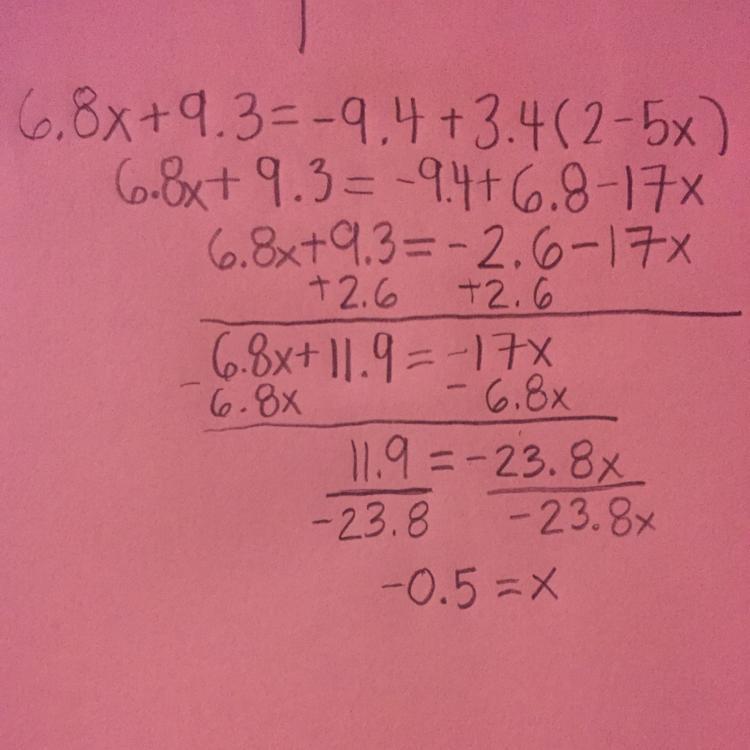 6.8x+9.3=-9.4+3.4(2-5x)
6.8x+9.3=-9.4+6.8-17x
6.8x+9.3=-2.6-17x
+2.6 +2.6
6.8x+11.9=-17x
-6.8x -6.8x
11.9=-23.8x
-23.8 -23.8x
-0.5=x